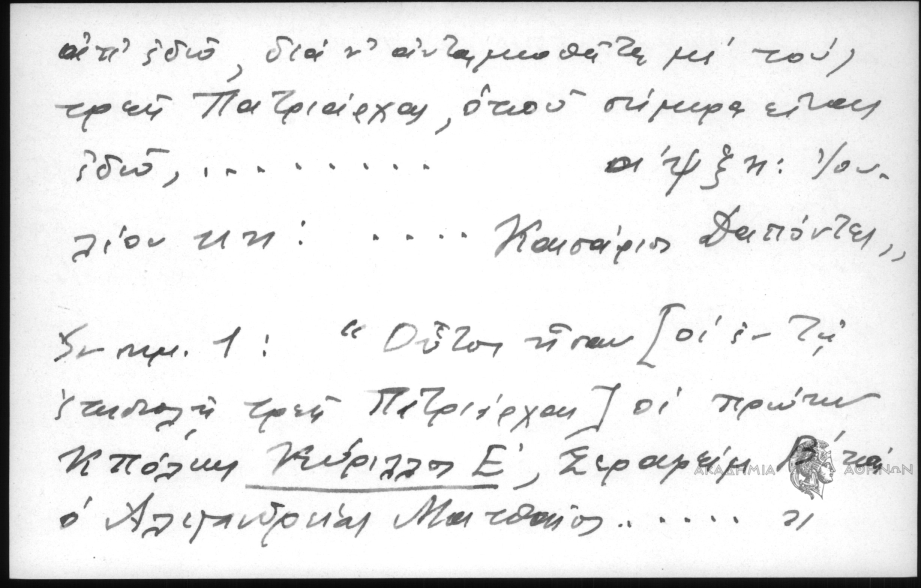 ἀπ' ἐδῶ, διὰ ν' ἀνταμωθῆτε μὲ τοὺς
τρεῖς Πατριάρχας, ὁποῦ σήμερα εἶναι
ἐδῶ, ......... αψξη: Ἰου-
λίου κη: .... Καισάριος Δαπόντες,,
Ἐν σημ. 1: "Οὗτοι ἦσαν [οἱ ἐν τῇ
ἐπιστολῇ τρεῖς Πατριάρχαι] οἱ πρώην
Κπόλεως Κύριλλος Ε', Σεραφεὶμ Β' καὶ
ὁ Ἀλεξανδρείας Ματθαῖος ...... "
ΑΚΑΔΗΜΙΑ ΑΘΗΝΩΝ